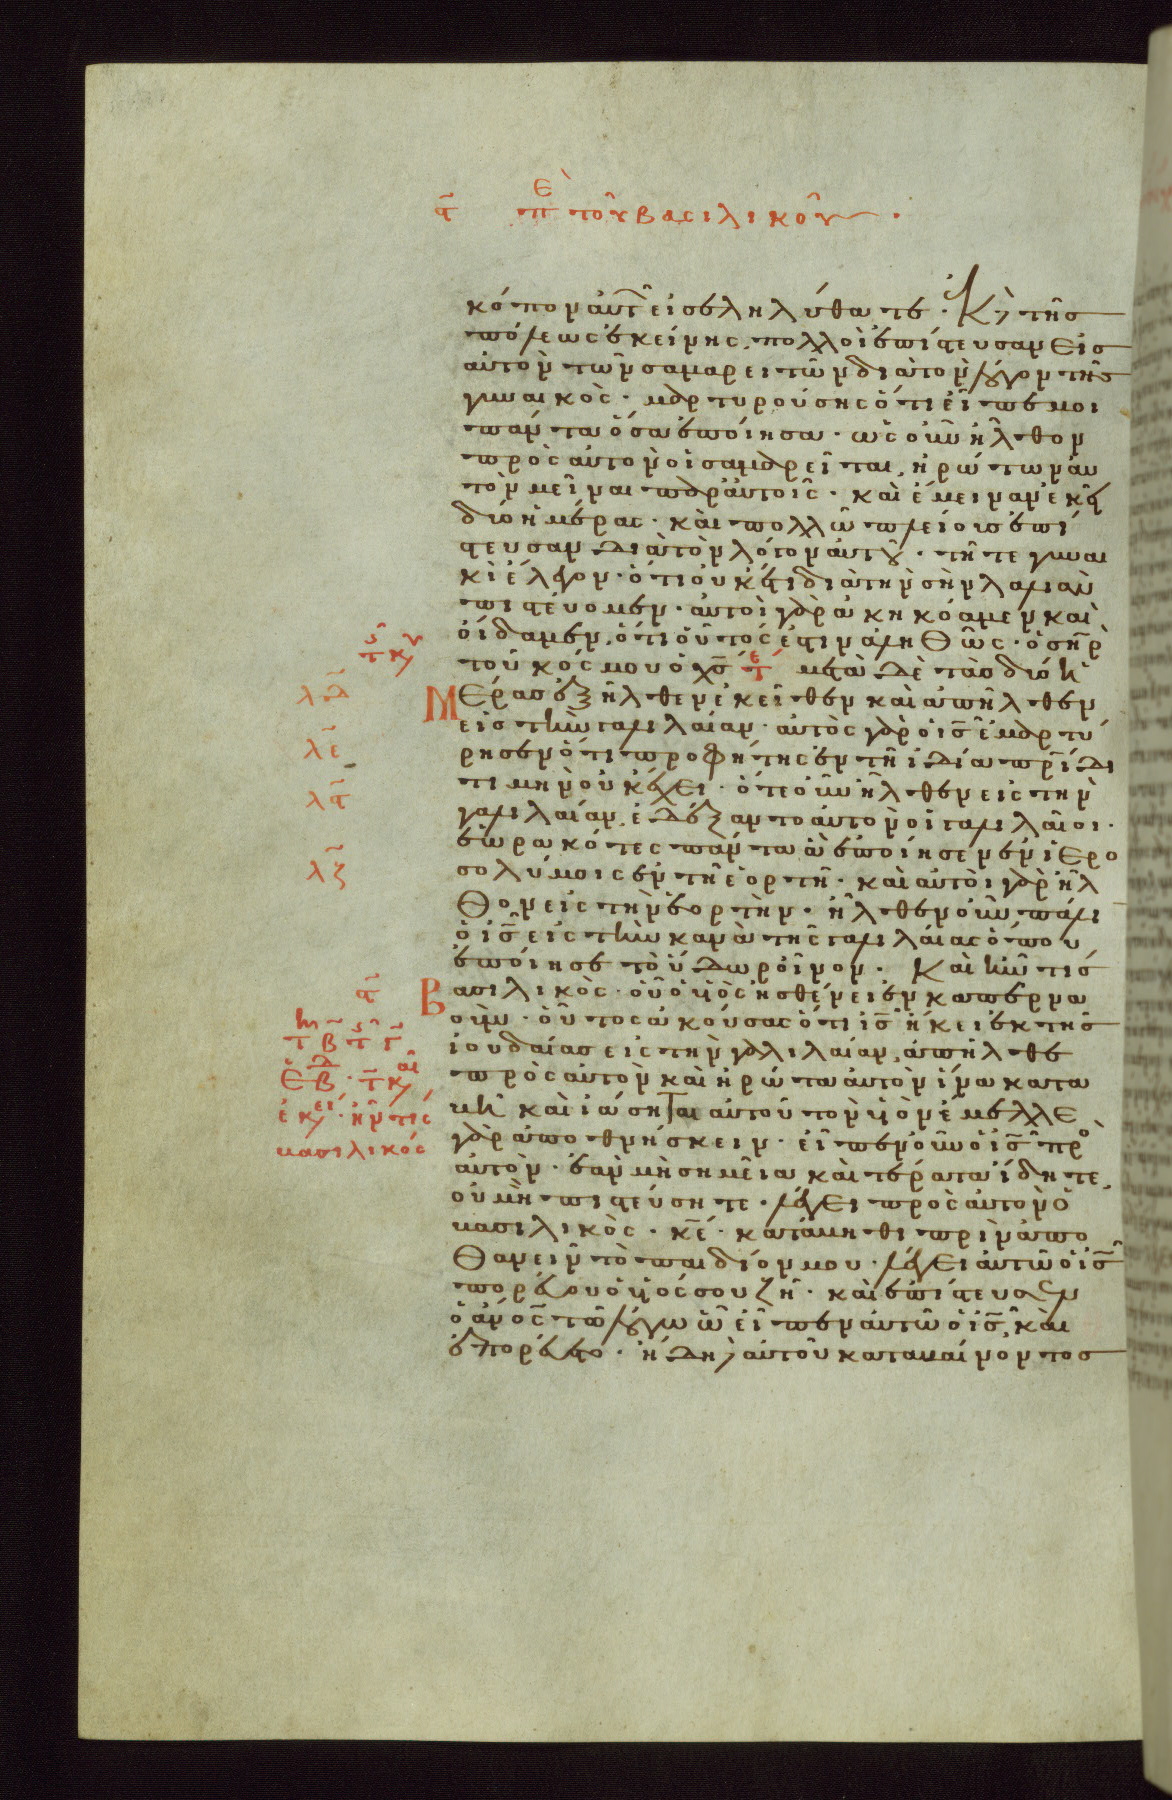 ϛ̄ πε τοῦ βασιλικοῦ.
κόπον αὐτ εἰσεληλύθατε· ἐκ τῆς
πόλεως ἐκείνης, πολλοὶ ἐπίστευσαν εἰς
αὐτὸν τῶν σαμαρειτῶν διὰ τὸν λόγον τῆς
γυναικὸς· μαρτυρούσης ὅτι εἶπέ μοι
πάντα ὅσα ἐποίησα· ὡς οὖν ἦλθον
πρὸς αὐτὸν οἱ σαμαρεῖται, ἠρώτων αὐ
τὸν μεῖναι παρ αὐτοῖς· καὶ ἔμεινεν ἐκεῖ
δύο ἡμέρας· καὶ πολλῶ πλείους ἐπί
στευσαν διὰ τὸν λόγον αὐτοῦ· τῆ τε γυναι
κὶ ἔλεγον· ὅτι οὐκέτι διὰ τὴν σὴν λαλιὰν
πιστεύομεν· αὐτοὶ γὰρ ἀκηκόαμεν καὶ
οἴδαμεν, ὅτι οὗτός ἐστιν ἀληθῶς· ὁ σηρ
τοῦ κόσμου ὁ χς̄ τε μετὰ δὲ τὰς δύο ἡ
Μέρας ἐξῆλθεν ἐκεῖθεν καὶ ἀπῆλθεν
εἰς τὴν γαλιλαίαν· αὐτὸς γὰρ ὁ ις̄ ἐμαρτύ
ρησεν ὅτι προφήτης ἐν τῆ ἰδία πρίδι
τιμὴν οὐκ ἔχει· ὅτε οὖν ἦλθεν εἰς τὴν
γαλιλαίαν, ἐδέξαντο αὐτὸν οἱ γαλιλαῖοι·
ἑωρακότες πάντα ἃ ἐποίησεν ἐν ἱερο
σολύμοις ἐν τῆ ἑορτῆ· καὶ αὐτοὶ γὰρ ἦλ
θον εἰς τὴν ἑορτὴν· ἦλθεν οὖν πάλι
ὁ ις̄ εἰς τὴν κανὰ τῆς γαλιλαίας ὅπου
ἐποίησε τὸ ὕδωρ οἶνον. Καὶ ἦν τις
Βασιλικὸς· οὗ ὁ υἱὸς ἠσθένει ἐν καπερνα
ούμ· οὗτος ἀκούσας ὅτι ις̄ ἥκει ἐκ τῆς
ἰουδαίας εἰς τὴν γαλιλαίαν, ἀπῆλθε
πρὸς αὐτὸν καὶ ἠρώτα αὐτὸν ἵνα κατα
βῆ καὶ ἰάσηται αὐτοῦ τὸν υἱὸν ἔμελλε
γὰρ ἀποθνήσκειν· εἶπεν οὖν ὁ ις̄ πρὸ
αὐτὸν· ἐὰν μὴ σημεῖα καὶ τέρατα ἴδητε,
οὐ μὴ πιστεύσητε· λέγει πρὸς αὐτὸν ὁ
βασιλικὸς· κε̄· κατάβηθι πρὶν ἀπο
θανεῖν τὸ παιδίον μου· λέγει αὐτῶ ὁ ις̄
πορεύου ὁ υἱός σου ζῆ· καὶ ἐπίστευσεν
ὁ ἄνος̄ τῶ λόγω ὧ εἶπεν αὐτῶ ὁ ις̄, καὶ
ἐπορεύετο· ἤδη αὐτοῦ καταβαίνοντος
λδ̄
λε̄
λϛ̄
λζ̄
ϛ̄
βασιλικός